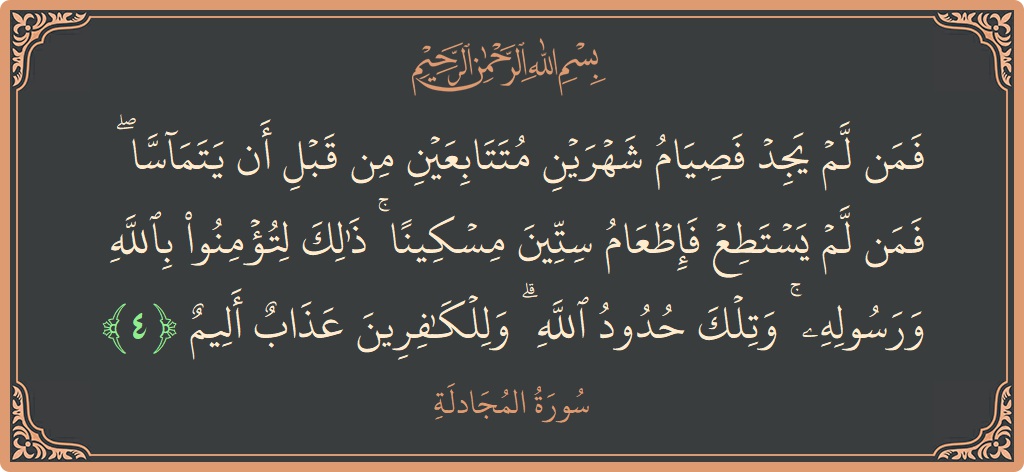 بِسْمِ اللَّهِ الرَّحْمَٰنِ الرَّحِيمِ
فَمَن لَّمْ يَجِدْ فَصِيَامُ شَهْرَيْنِ مُتَتَابِعَيْنِ مِن قَبْلِ أَن يَتَمَآسَّا ۖ
فَمَن لَّمْ يَسْتَطِعْ فَإِطْعَامُ سِتِّينَ مِسْكِينًا ۚ ذَٰلِكَ لِتُؤْمِنُوا۟ بِٱللَّهِ
وَرَسُولِهِۦ ۚ وَتِلْكَ حُدُودُ ٱللَّهِ ۗ وَلِلْكَـٰفِرِينَ عَذَابٌ أَلِيمٌ ﴿٤﴾
سُورَةُ المُجَادلَةِ